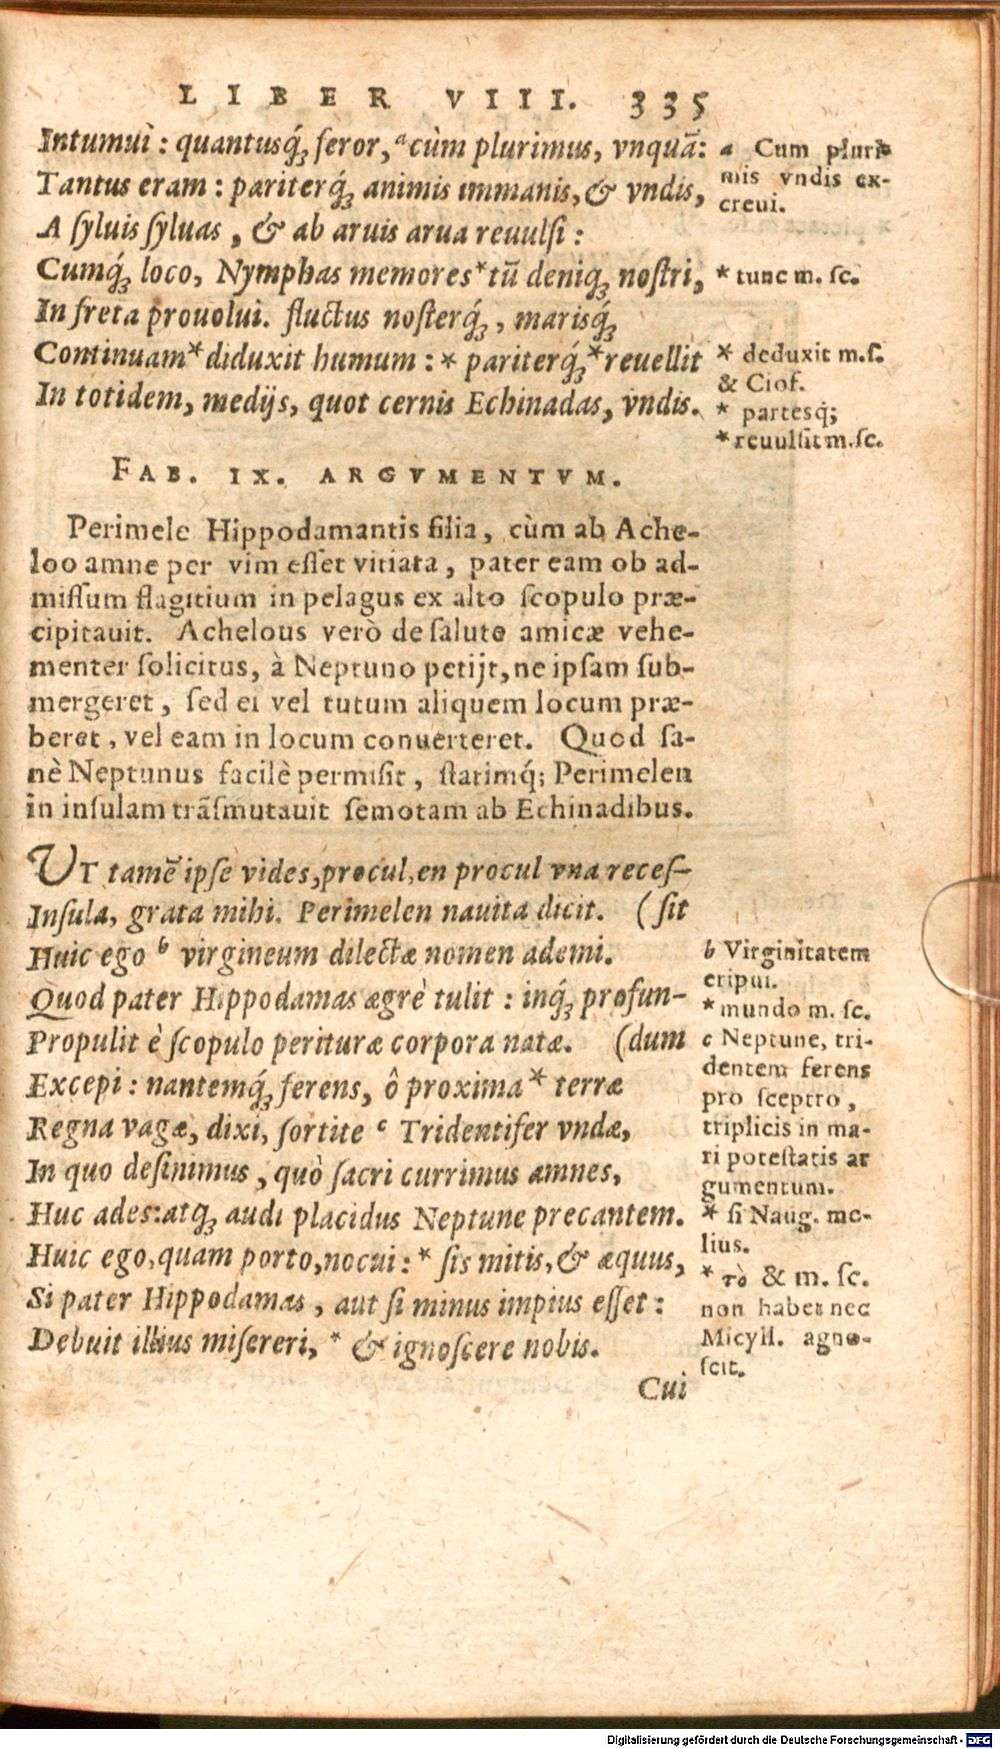 LIBER VIII. 335
Intumuì: quantusq́ꝫ feror, ᵃ cùm plurimus, vnquã:
Tantus eram: pariterq́ꝫ animis immanis, & vndis,
A ſyluis ſyluas, & ab aruis arua reuulſi:
Cumq́ꝫ loco, Nymphas memores * tũ deniqꝫ noſtri,
In freta prouolui. fluctus noſterq́ꝫ, marisq́ꝫ
Continuam * diduxit humum: * pariterq́ꝫ * reuellit
In totidem, medijs, quot cernis Echinadas, vndis.
a Cum pluri
mis vndis ex-
creui.
* tunc m. ſc.
* deduxit m. ſ.
& Cioſ.
* partesq́;
* reuulſit m. ſc.
FAB. IX. ARGVMENTVM.
Perimele Hippodamantis filia, cùm ab Ache-
loo amne per vim eſſet vitiata, pater eam ob ad-
miſſum flagitium in pelagus ex alto ſcopulo præ-
cipitauit. Achelous verò de ſalute amicæ vehe-
menter ſolicitus, à Neptuno petijt, ne ipſam ſub-
mergeret, ſed ei vel tutum aliquem locum præ-
beret, vel eam in locum conuerteret. Quod ſa-
nè Neptunus facilè permiſit, ſtatimq́; Perimelen
in inſulam trãſmutauit ſemotam ab Echinadibus.
VT tamẽ ipſe vides, procul, en procul vna receſ-
Inſula, grata mihi. Perimelen nauita dicit. (ſit
Huic ego ᵇ virgineum dilectæ nomen ademi.
Quod pater Hippodamas ægrè tulit: inq́ꝫ profun-
Propulit è ſcopulo perituræ corpora natæ. (dum
Excepi: nantemq́ꝫ ferens, ô proxima * terræ
Regna vagæ, dixi, ſortite ᶜ Tridentifer vndæ,
In quo deſinimus, quò ſacri currimus amnes,
Huc ades: atqꝫ audi placidus Neptune precantem.
Huic ego, quam porto, nocui: * ſis mitis, & æquus,
Si pater Hippodamas, aut ſi minus impius eſſet:
Debuit illius miſereri, * & ignoſcere nobis.
b Virginitatem
eripui.
* mundo m. ſc.
c Neptune, tri-
dentem ferens
pro ſceptro,
triplicis in ma-
ri poteſtatis ar
gumentum.
* ſi Naug. me-
lius.
* τὸ & m. ſc.
non habet nec
Micyll. agno-
ſcit.
Cui
Digitalisierung gefördert durch die Deutsche Forschungsgemeinschaft - DFG